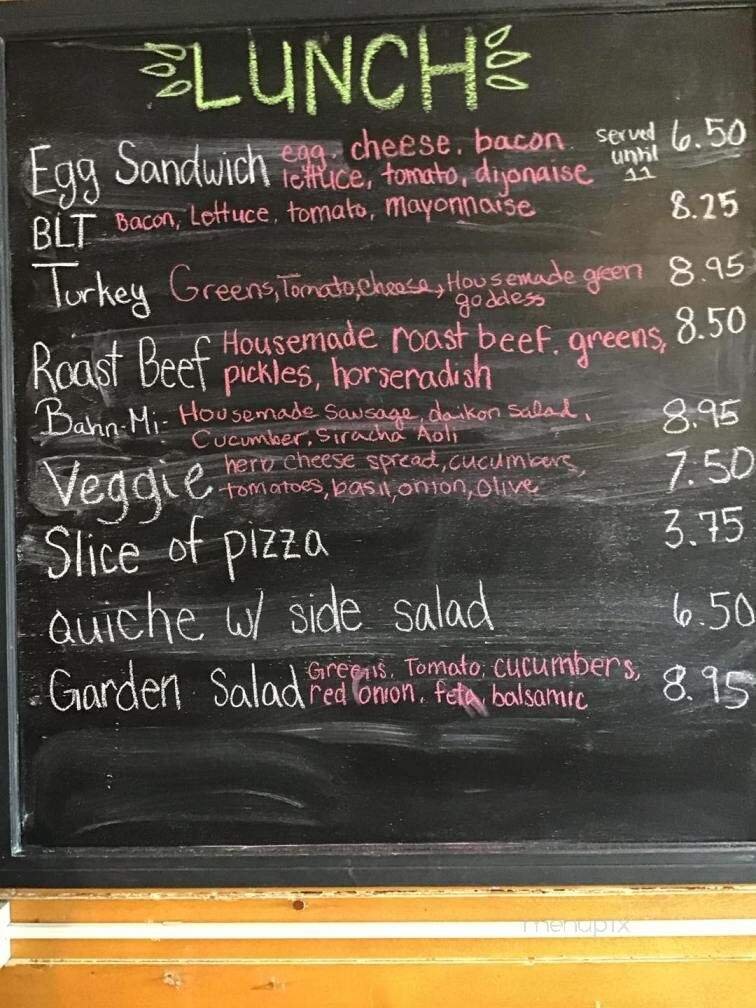 LUNCH
Egg Sandwich egg, cheese, bacon served until 11 6.50
lettuce, tomato, dijonaise
BLT Bacon, Lettuce, tomato, mayonnaise 8.25
Turkey Greens, Tomato, cheese, Housemade green 8.95
goddess
Roast Beef Housemade roast beef, greens, 8.50
pickles, horseradish
Bahn-Mi- Housemade Sausage, daikon salad, 8.95
Cucumber, Siracha Aoli
Veggie herb cheese spread, cucumbers, 7.50
tomatoes, basil, onion, olive
Slice of pizza 3.75
quiche w/ side salad 6.50
Garden Salad Greens, Tomato, cucumbers, 8.95
red onion, feta, balsamic
menupix